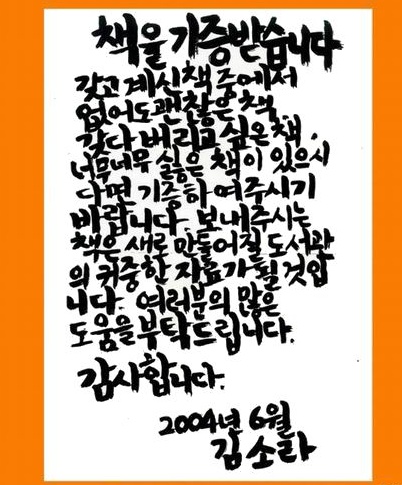 책을 기증받습니다
갖고 계신 책 중에서
없어도 괜찮은 책,
갖다 버리고 싶은 책,
너무너무 싫은 책이 있으시
다면 기증하여주시기
바랍니다. 보내주시는
책은 새로 만들어질 도서관
의 귀중한 자료가 될 것입
니다. 여러분의 많은
도움을 부탁드립니다.
감사합니다.
2004년 6월
김소라